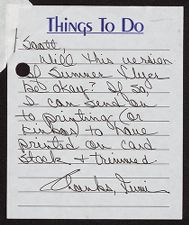 Things To Do
Scott,
Will this version
of Summer Flyer
be okay? If so
I can send on
to printing (or
Kinkos) to have
printed on card
stock & trimmed
Thanks,